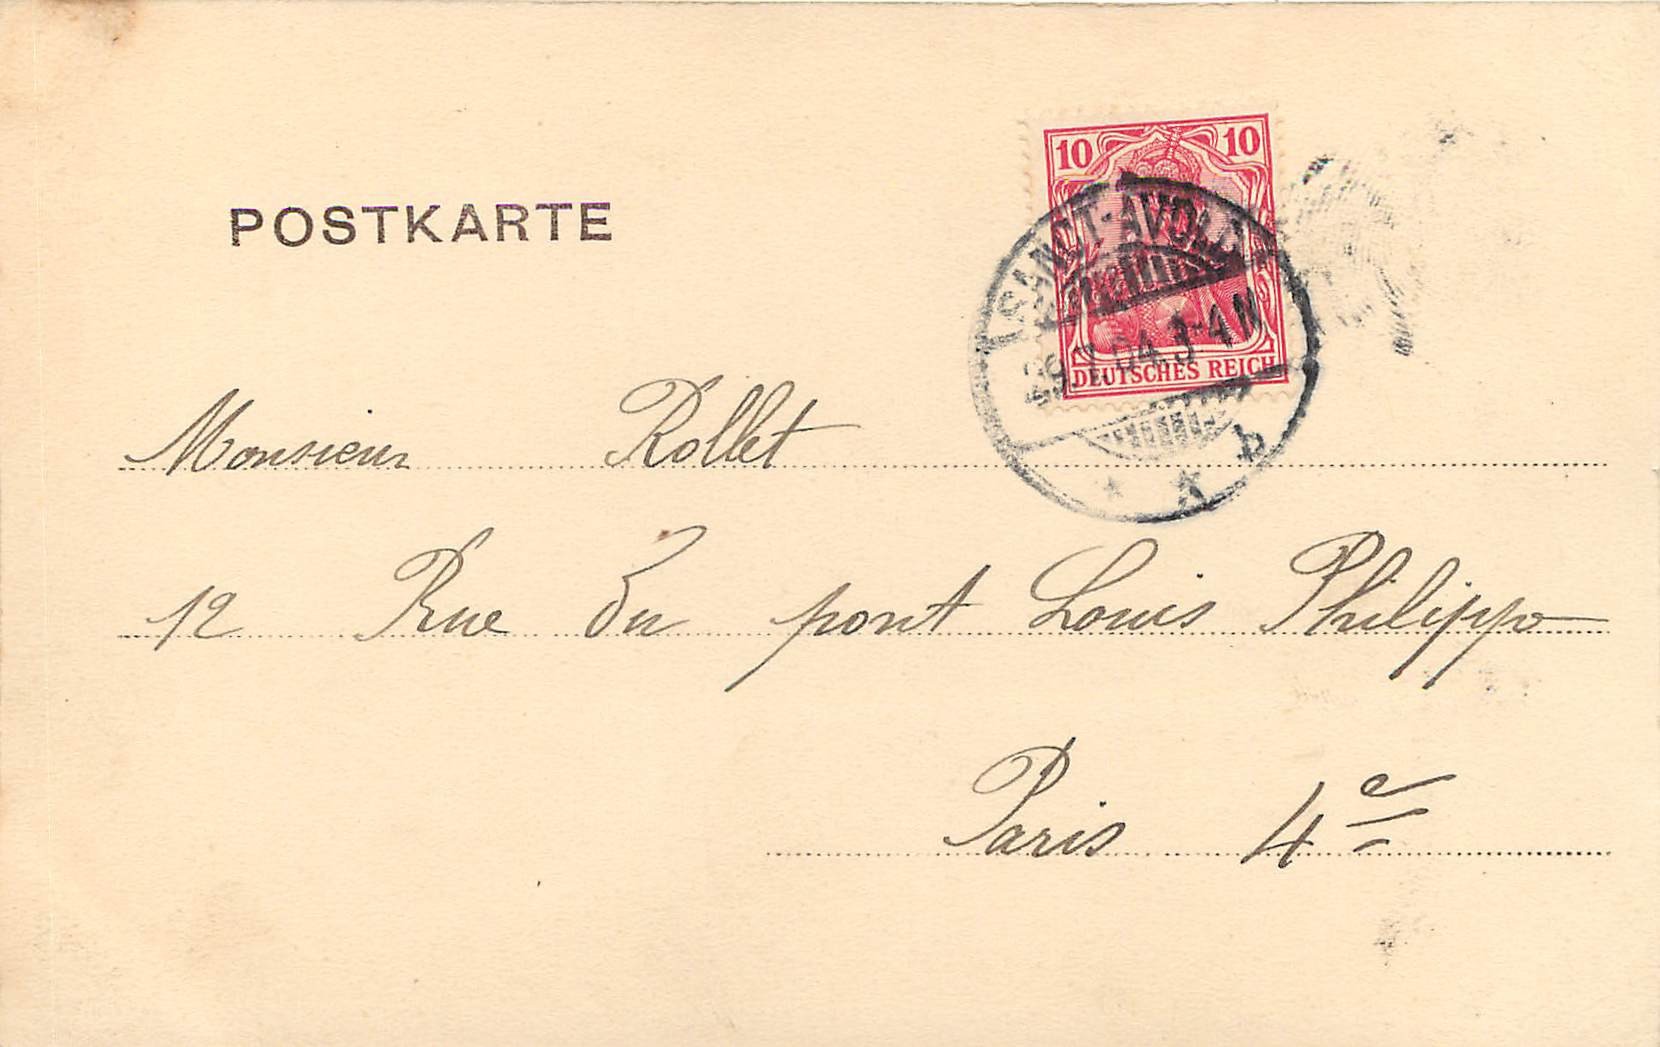 10 10
POSTKARTE
SANCT-AVOLD
29.7.04. 3-4 N
DEUTSCHES REICH
* * b
Monsieur Rollet
12 Rue du pont Louis Philippe
Paris 4e